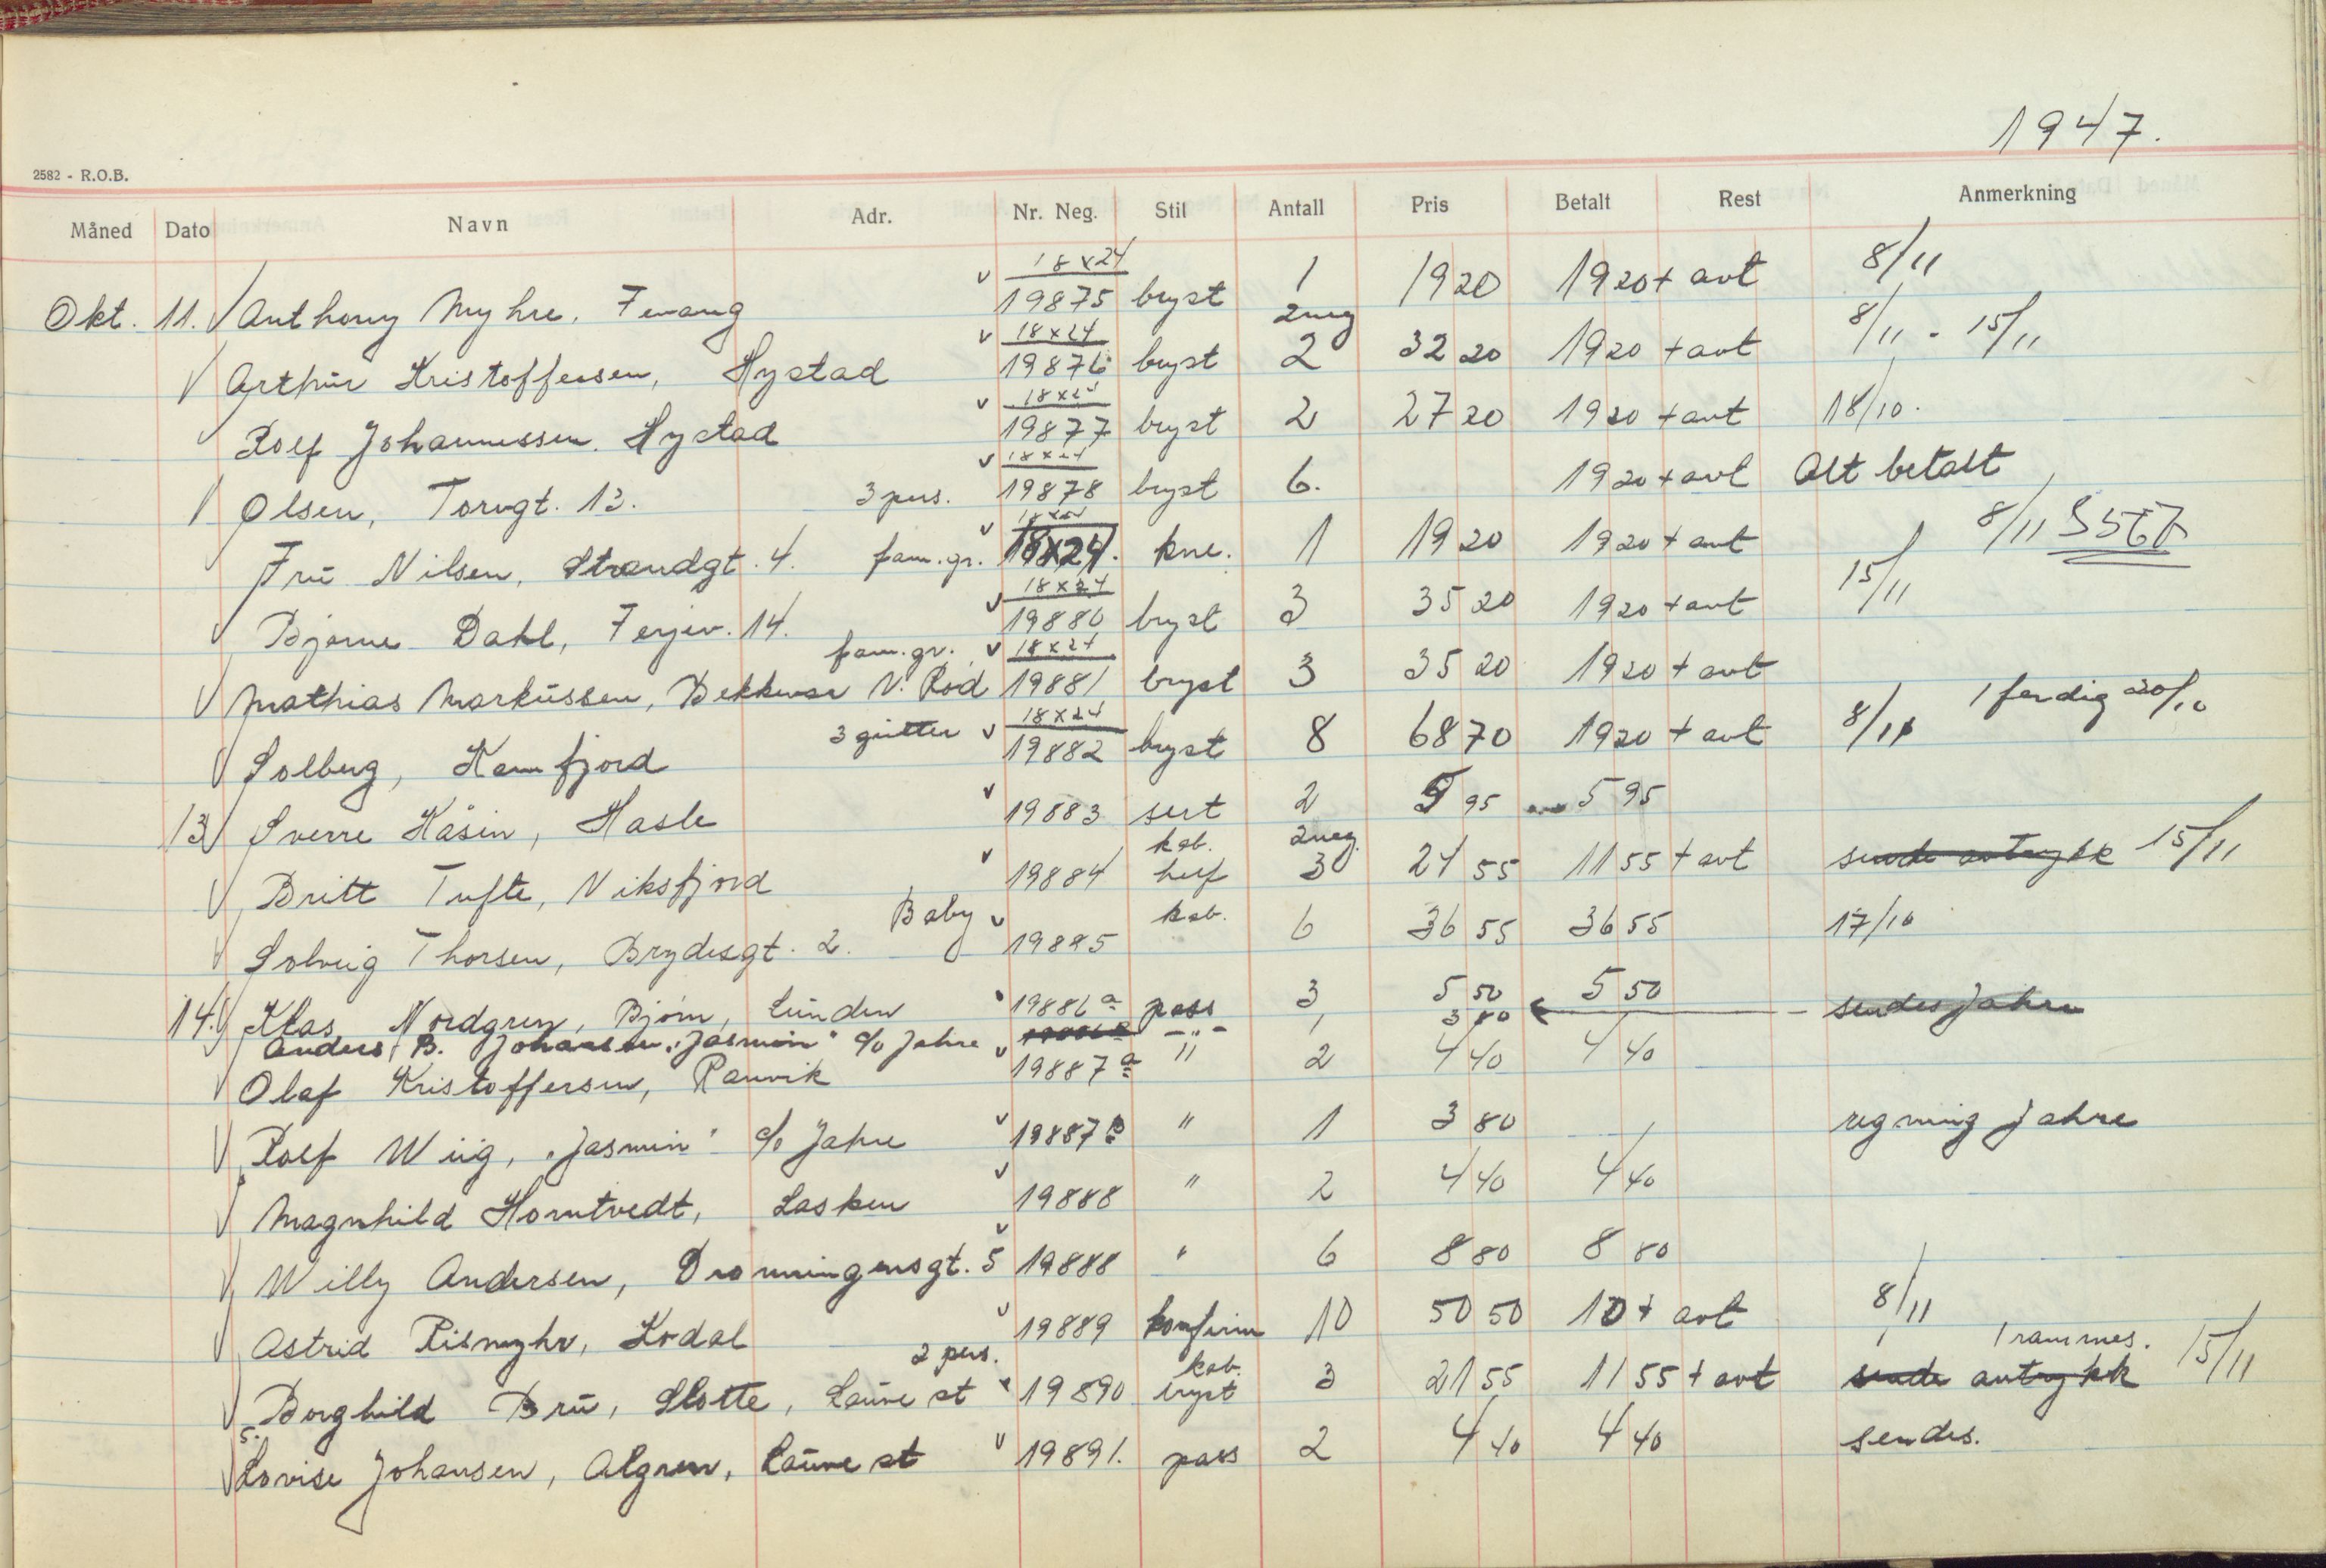 1947.
2582 - R.O.B.
Måned Dato Navn Adr. Nr. Neg. Stil Antall Pris Betalt Rest Anmerkning
18x24
Okt. 11. Anthony Myhre, Fevang 19875 bryst 1 19 20 19 20 + avt 8/11
18x24 2neg
Arthur Kristoffersen, Hystad 19876 bryst 2 32 20 19 20 + avt 8/11 - 15/11
18x24
Rolf Johannessen. Hystad 19877 bryst 2 27 20 19 20 + avt 18/10.
18x24
Olsen, Torvgt. 13. 3 pers. 19878 bryst 6. 19 20 + avt Alt betalt
18x24
Fru Nilsen, Strandgt. 4. fam.gr. 18x24. kne. 1 19 20 19 20 + avt 8/11 5567
18x24
Bjarne Dahl, Ferjev. 14. 19880 bryst 3 35 20 19 20 + avt 15/11
fam.gr. 18x24
Mathias Markussen, V. Rød 19881 bryst 3 35 20 19 20 + avt
3 gutter 18x24
Solberg, Kamfjord 19882 bryst 8 68 70 19 20 + avt 8/11 1 ferdig 20/10
13 Sverre Håsin, Hasle 19883 sert 2 5 95 5 95
kab. 2neg.
Britt Tufte, Viksfjord 19884 helf 3 24 55 11 55 + avt sende avtrykk 15/11
Baby kab.
Solveig Thorsen, Brydesgt. 2. 19885 6 36 55 36 55 17/10
14. Klas Nordgren, Bjørn, Lunden 19886a pass 3 5 50 5 50
Anders B. Johansen "Jasmin" c/o Jahre -"- 1 3 80 sendes Jahre
Olaf Kristoffersen, Ranvik 19887a " 2 4 40 4 40
Rolf Wiig, "Jasmin" c/o Jahre 19887B " 1 3 80 regning Jahre
Magnhild Horntvedt, Lasken 19888 " 2 4 40 4 40
Willy Andersen, Dronningensgt. 5 19888 " 6 8 80 8 80
Astrid Risnyhr, Kodal 19889 konfirm 10 50 50 10 + avt 8/11
2 pers. kab. 1 rammes.
Borghild Bru, Slotte, Lauve st 19890 bryst 3 21 55 11 55 + avt sende avtrykk 15/11
Lovise Johansen, Algren, Lauve st 19891. pass 2 4 40 4 40 sendes.